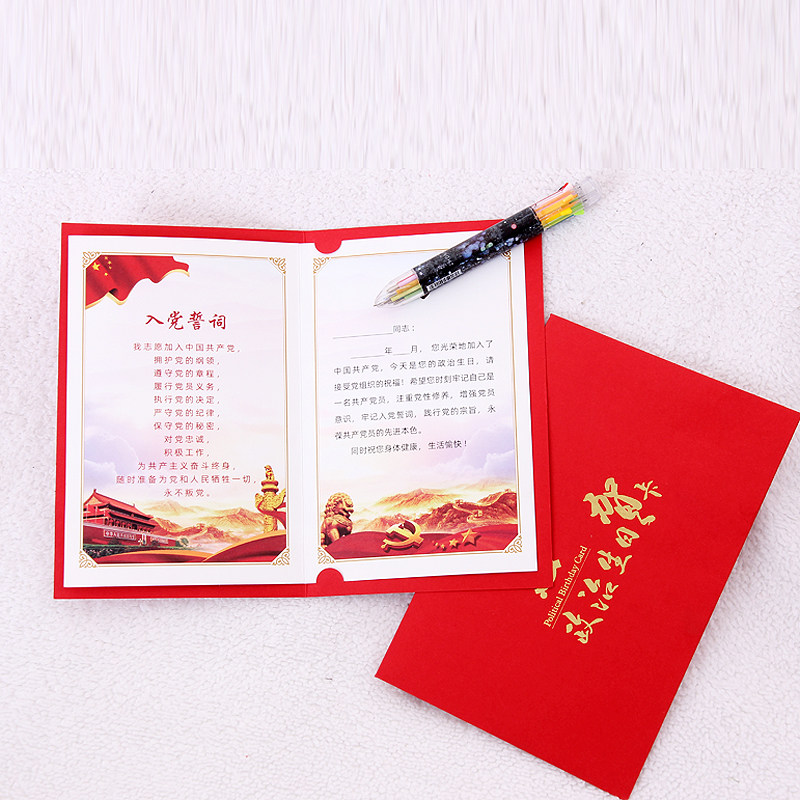 入党誓词
我志愿加入中国共产党，
拥护党的纲领，
遵守党的章程，
履行党员义务，
执行党的决定，
严守党的纪律，
保守党的秘密，
对党忠诚，
积极工作，
为共产主义奋斗终身，
随时准备为党和人民牺牲一切，
永不叛党。
________同志：
________年____月，您光荣地加入了
中国共产党，今天是您的政治生日，请
接受党组织的祝福！希望您时刻牢记自己是
一名共产党员，注重党性修养，增强党员
意识，牢记入党誓词，践行党的宗旨，永
葆共产党员的先进本色。
同时祝您身体健康，生活愉快！
政治生日
贺卡
Political Birthday Card